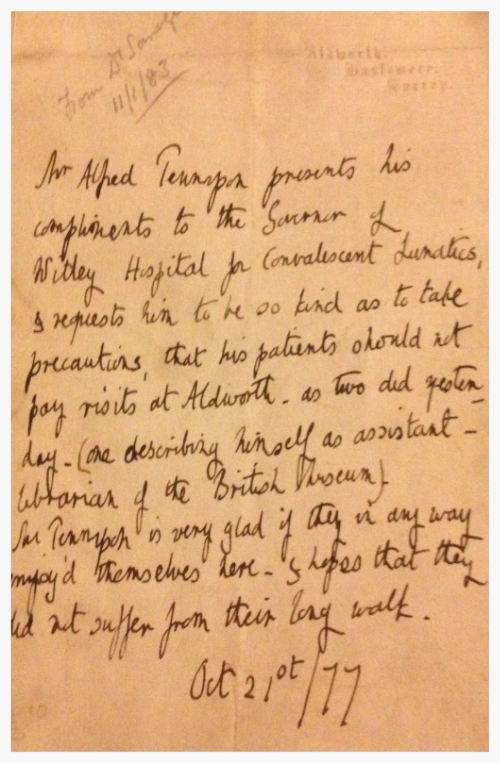 From Dr Savage
11/1/83
Aldworth,
Haslemere,
Surrey.
Mr Alfred Tennyson presents his
compliments to the Governor of
Witley Hospital for Convalescent Lunatics,
& requests him to be so kind as to take
precautions, that his patients should not
pay visits at Aldworth - as two did yester-
day - (one describing himself as assistant -
librarian of the British Museum).
Mr Tennyson is very glad if they in any way
enjoy'd themselves here - & hopes that they
did not suffer from their long walk.
Oct 21st/77